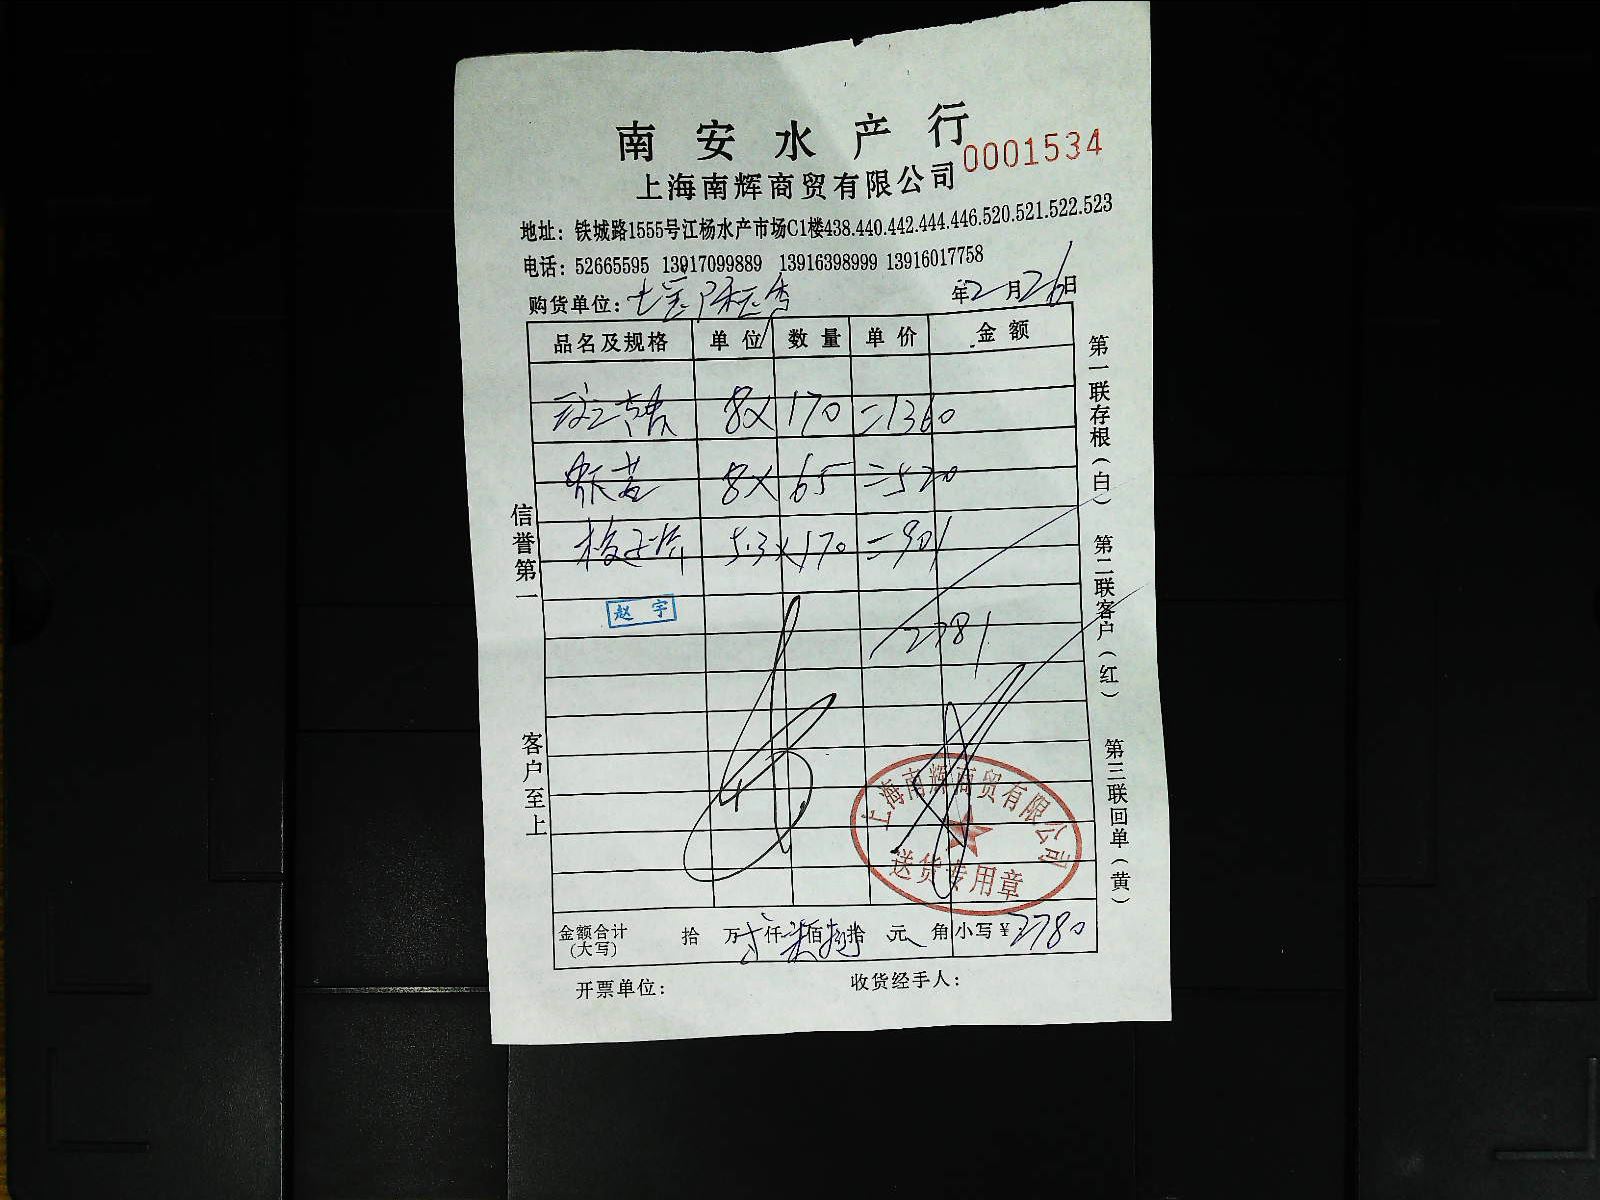 南安水产行
0001534
上海南辉商贸有限公司
地址：铁城路1555号江杨水产市场C1楼438.440.442.444.446.520.521.522.523
电话：52665595 13917099889 13916398999 13916017758
购货单位：七宝
年2月26日
品名及规格 单位 数量 单价 金额
8× 170 =1360
虾苗 8× 65 =520
梭子蟹 5.3× 170 =901
赵宇
2781
上海南辉商贸有限公司
送货专用章
金额合计(大写) 拾 万 仟柒佰捌拾 元 角 小写¥2780
开票单位： 收货经手人：
信誉第一
客户至上
第一联存根(白)
第二联客户(红)
第三联回单(黄)